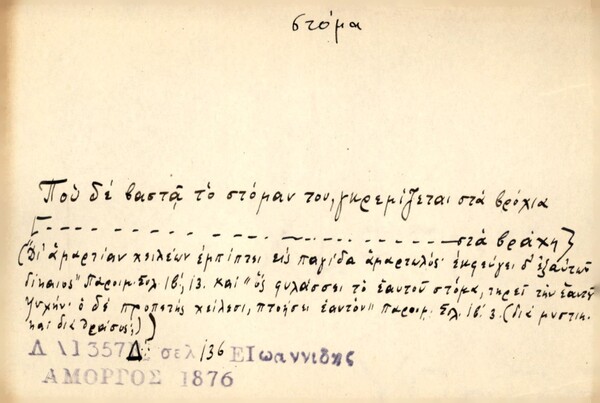 στόμα
Ποῦ δέ βαστᾷ τὸ στόμαν του, γκρεμίζεται στά βρόχια
[- - - - - - - - - - - - - - - - - - στὰ βράχη]
("Δι' ἁμαρτίαν χειλέων ἐμπίπτει εἰς παγίδα ἁμαρτωλός· ἐκφεύγει δ' ἐξ αὐτῶν
δίκαιος" Παροιμ. Σολ. ΙΒ', 13. καί "ὅς φυλάσσει τὸ ἑαυτοῦ στόμα, τηρεῖ τὴν ἑαυτοῦ
ψυχήν· ὁ δὲ προπετής χείλεσι, πτοήσει ἑαυτόν" Παροιμ. Σολ. ΙΒ' 3. (διά
καὶ διὰ θράσους))
Δ \1357 Δ' σελ 136 ΕΙωαννιδης
ΑΜΟΡΓΟΣ 1876